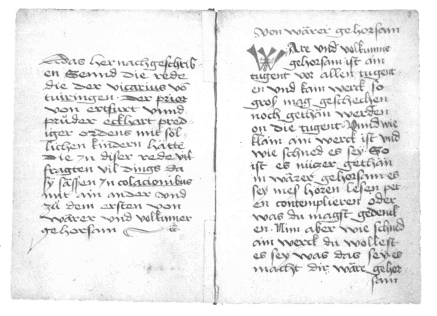 Das her nachgeschrib
en Seind die rede
die der vicarius vo
türingen der prior
von ertfurt vnnd
prüder eckhart pred
iger ordens mit söl
lichen kindern hatte
die zu diser rede vil
fragten vil dings da
sy sassen zu colacionibus
mit ain ander vnd
zu dem ersten von
warer vnd volkumner
gehorsam
von wärer gehorsam
Ware vnd volkumne
gehorsam ist ain
tugent vor allen tugent
en vnd kain werck so
gros mag geschechen
noch gethän werden
on die tugent vnd wie
klain ain werck ist vnd
wie schned es sey So
ist es nützer gethän
in wärer gehorsam es
sey mes hören lesen pet
en contemplieren oder
was du magst gedenck
en Nim aber wie schned
ain werck du wöllest
es sey was das sey es
macht dir wäre gehor
sam